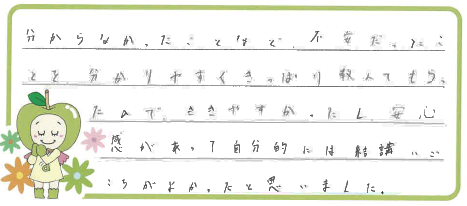 分からなかったことなど、不安だったこ
とを分かりやすくきっぱり教えてもらっ
たので、ききやすかったし、安心
感があって自分的には結講いご
こちがよかったと思いました。